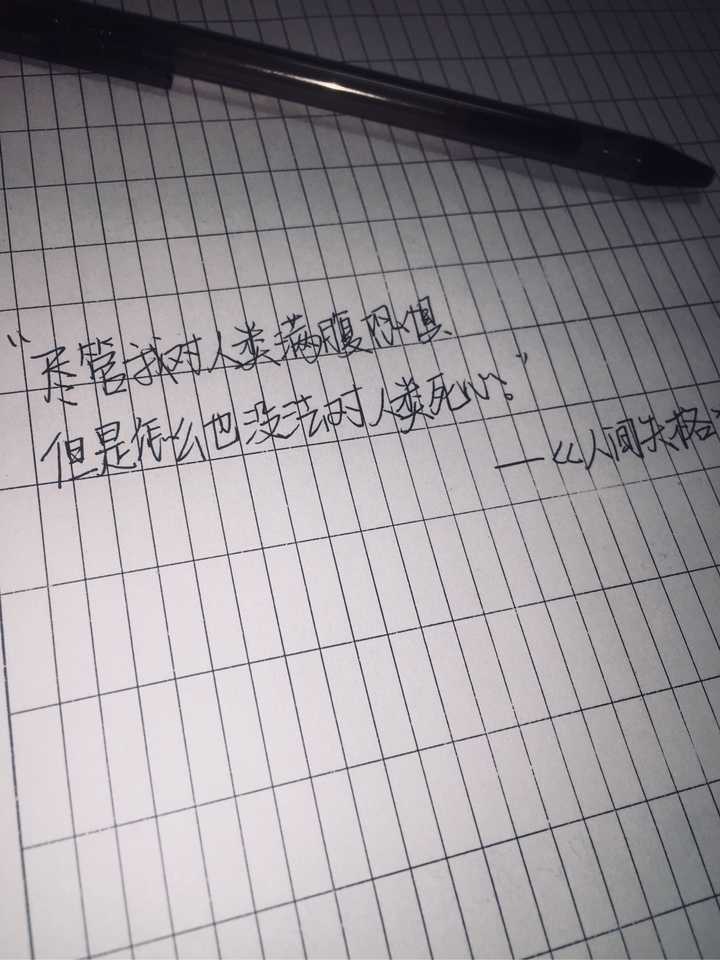 “尽管我对人类满腹恐惧
但是怎么也没法对人类死心。”
——《人间失格》